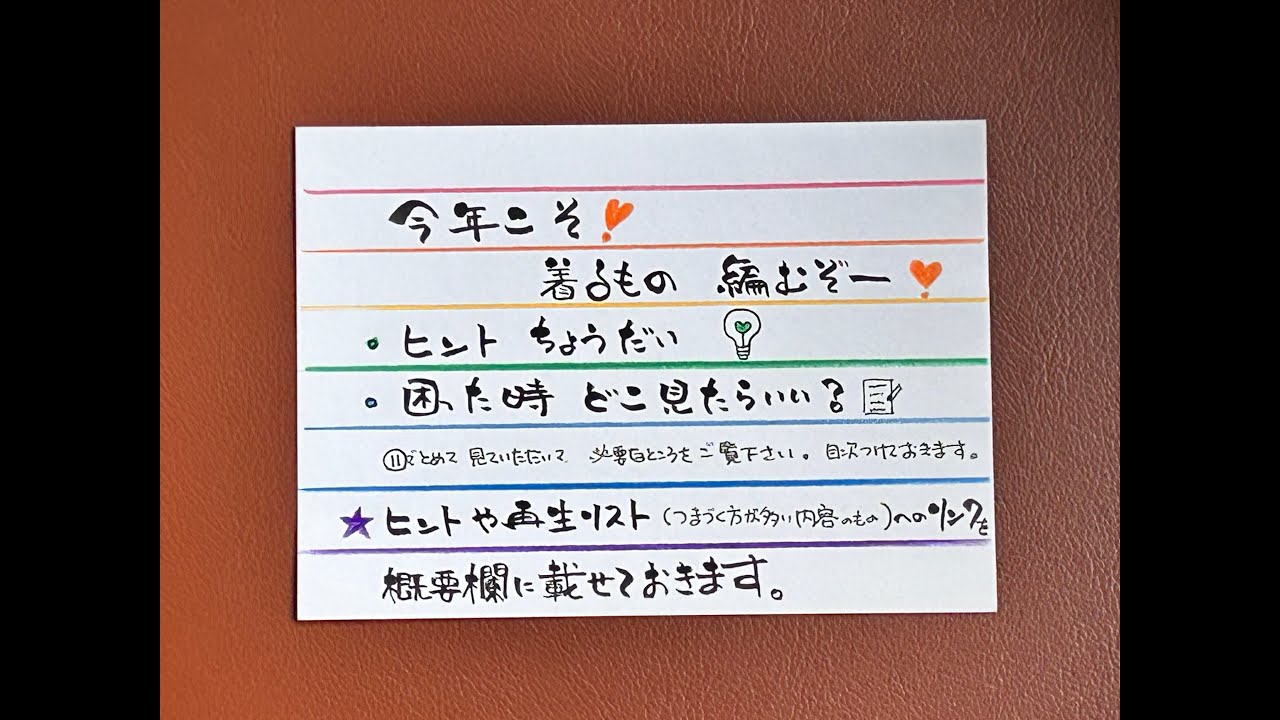 今年こそ❗
着るもの 編むぞー❣
• ヒント ちょうだい
• 困った時 どこ見たらいい?
⏸でとめて 見ていただいて 必要なところをご覧下さい。 目次つけておきます。
★ヒントや再生リスト(つまづく方が多い内容のもの)へのリンクを
概要欄に載せておきます。